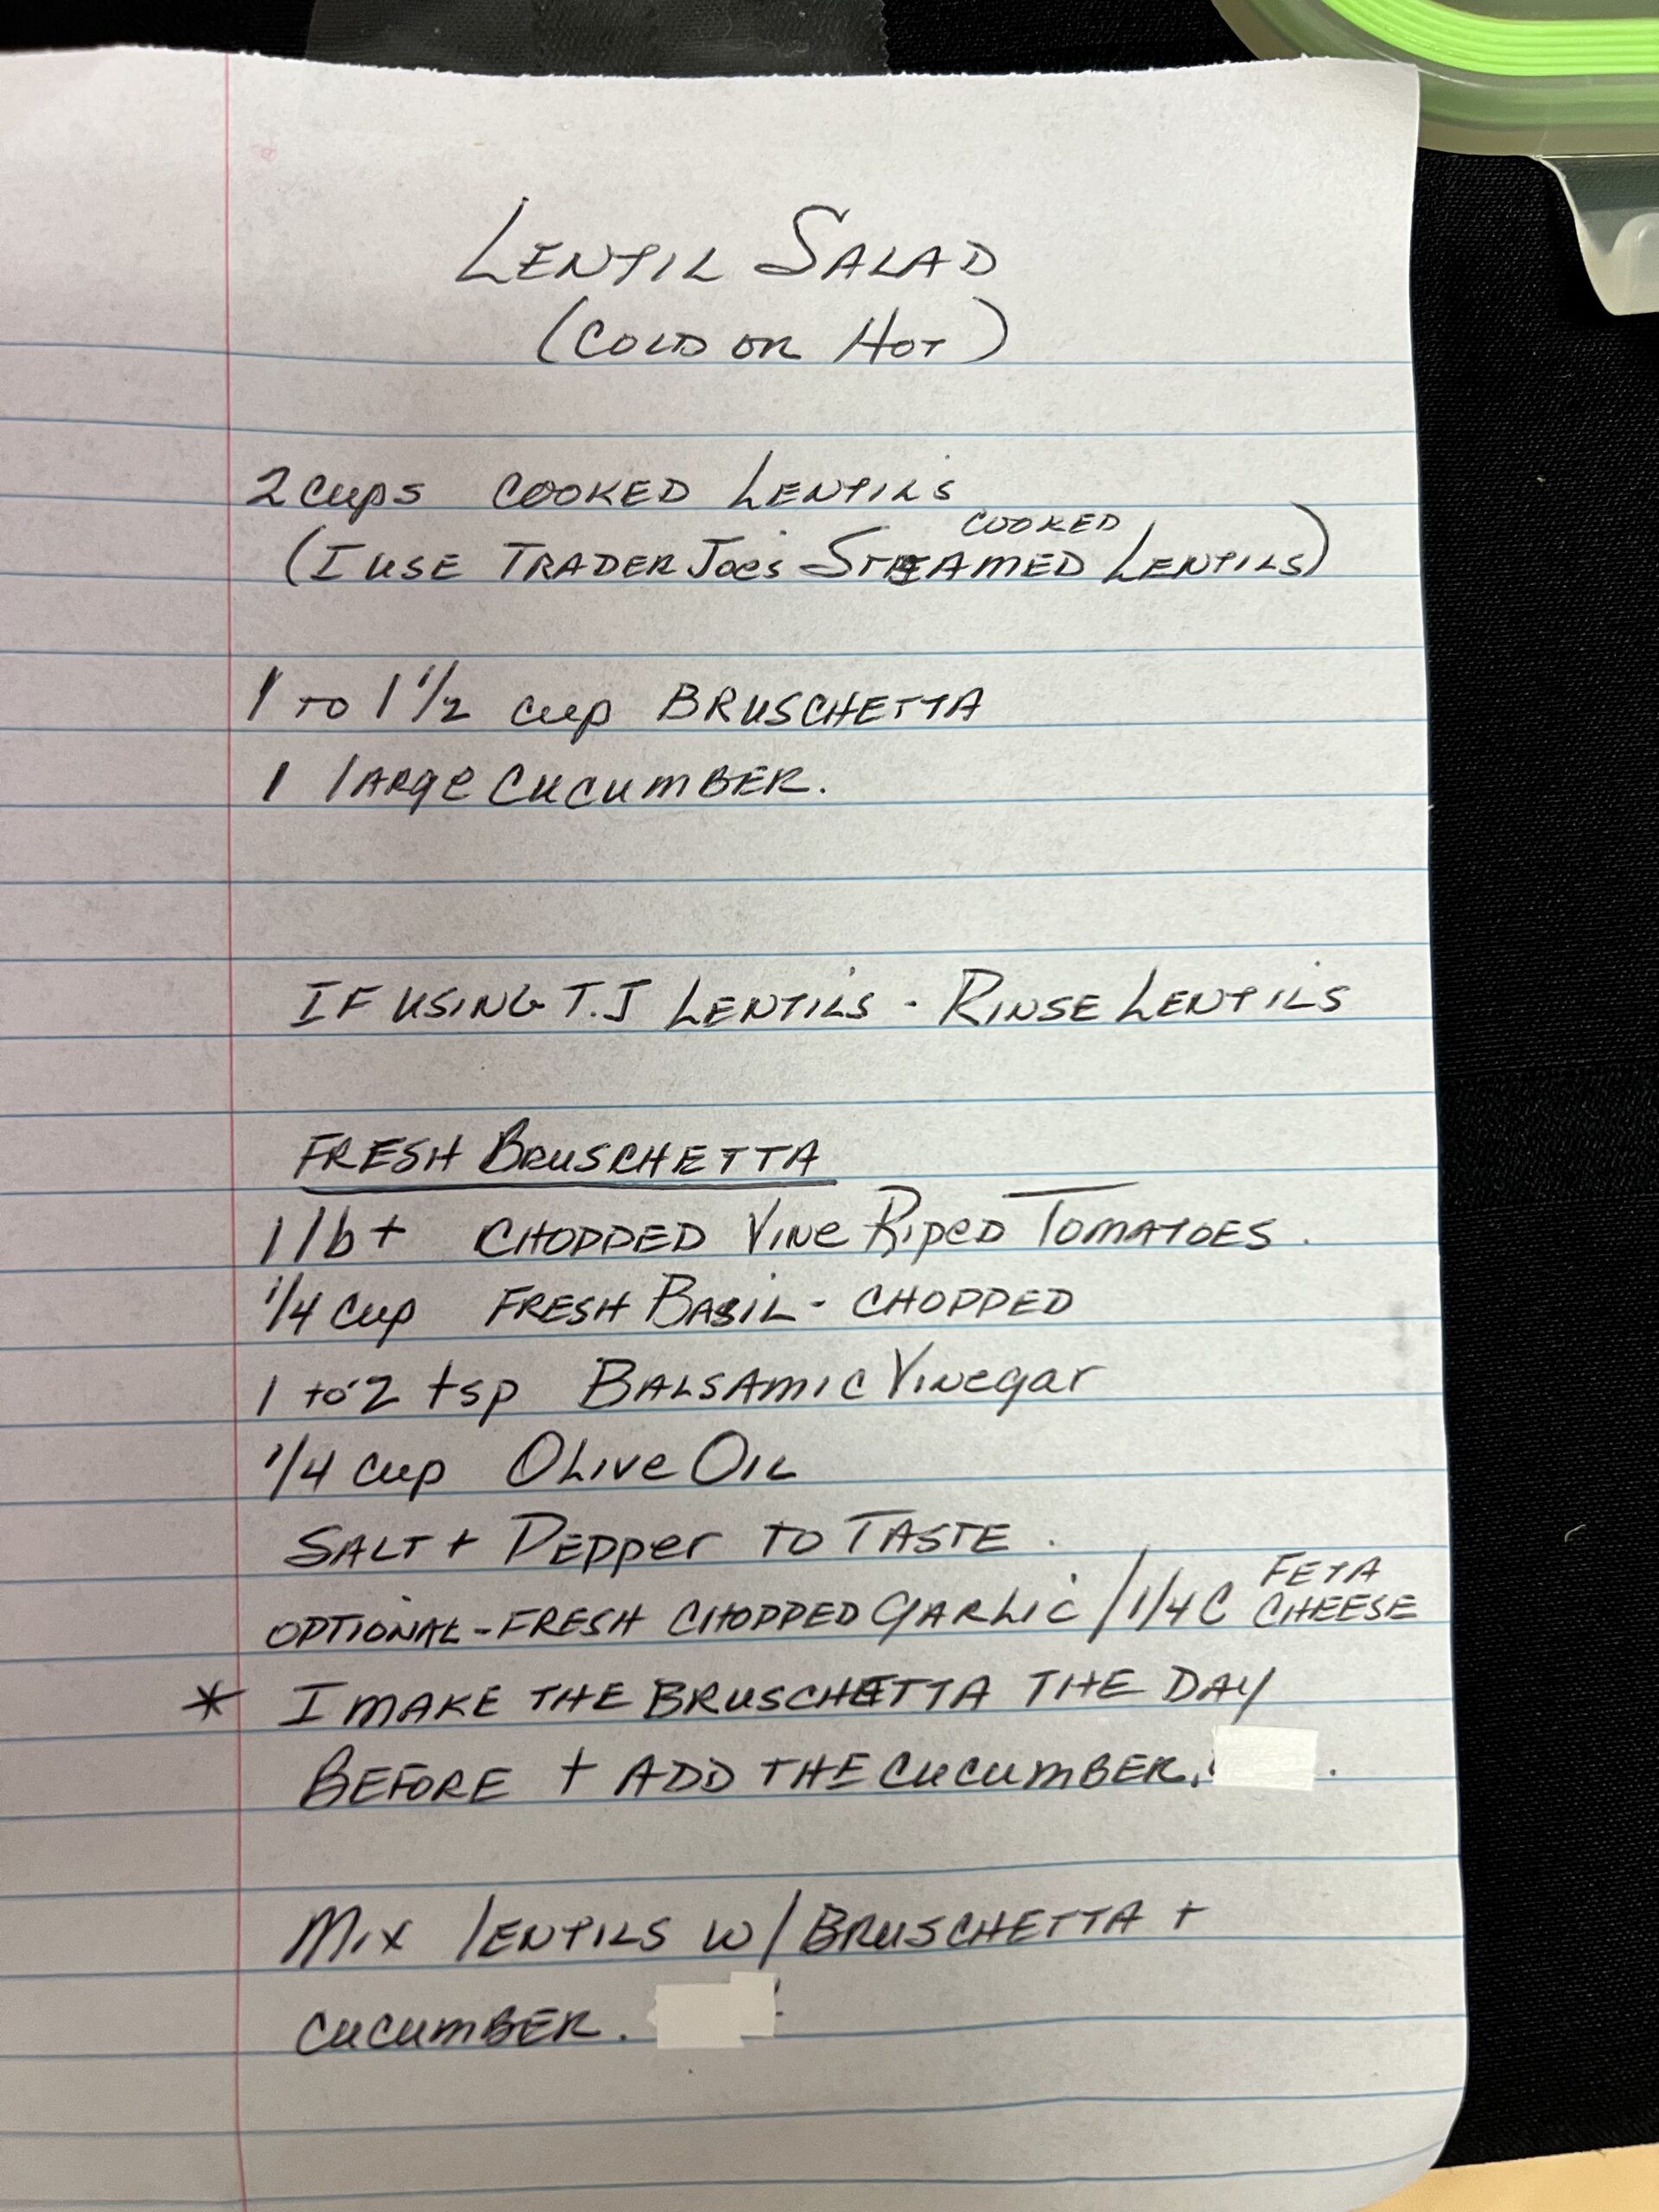 LENTIL SALAD
(COLD OR HOT)
2 cups COOKED LENTILS
COOKED
(I USE TRADER JOE'S STEAMED LENTILS)
1 TO 1 1/2 cup BRUSCHETTA
1 large CUCUMBER.
IF USING T.J LENTILS - RINSE LENTILS
FRESH BRUSCHETTA
1 lb + CHOPPED VINE RIPED TOMATOES.
1/4 cup FRESH BASIL - CHOPPED
1 to 2 tsp BALSAMIC VINEGAR
1/4 cup OLIVE OIL
SALT + PEPPER TO TASTE.
OPTIONAL - FRESH CHOPPED GARLIC / 1/4 C FETA CHEESE
* I MAKE THE BRUSCHETTA THE DAY
BEFORE + ADD THE CUCUMBER.
MIX LENTILS W/ BRUSCHETTA +
CUCUMBER.